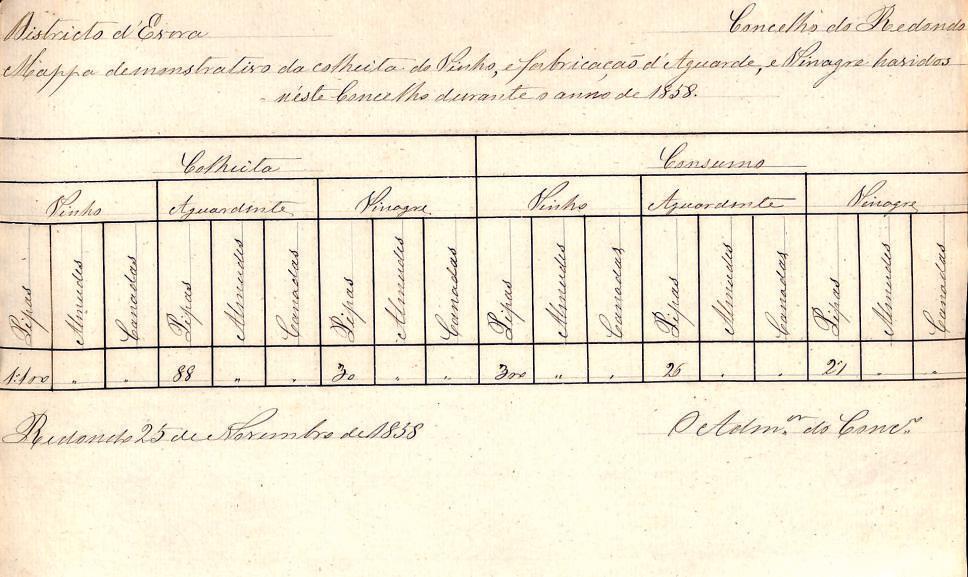 Districto d'Evora
Concelho do Redondo
Mappa demonstrativo da colheita do Vinho, e fabricação d'Aguarde, e Vinagre havidos
néste Concelho durante o anno de 1858.
Colheita Consumo
Vinho Aguardente Vinagre Vinho Aguardente Vinagre
Pipas Almudes Canadas Pipas Almudes Canadas Pipas Almudes Canadas Pipas Almudes Canadas Pipas Almudes Canadas Pipas Almudes Canadas
1:100 " " 88 " " 30 " " 300 " " 26 " " 27 " "
Redondo 25 de Novembro de 1858
O Adm.or do Conc.o